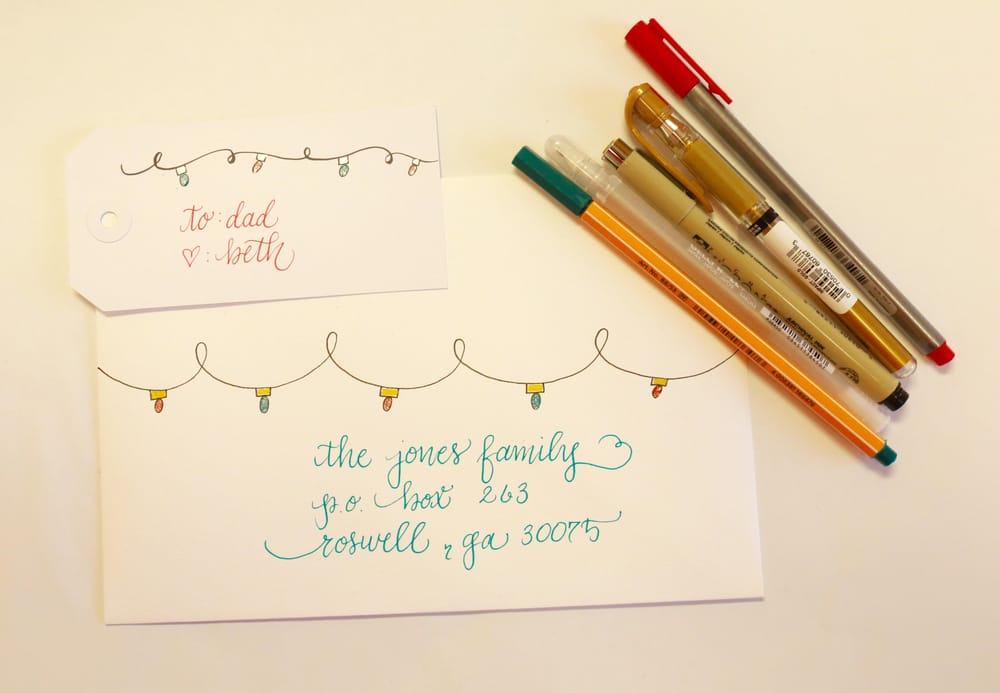 to: dad
♡: beth
the jones family
p.o. box 263
roswell, ga 30075